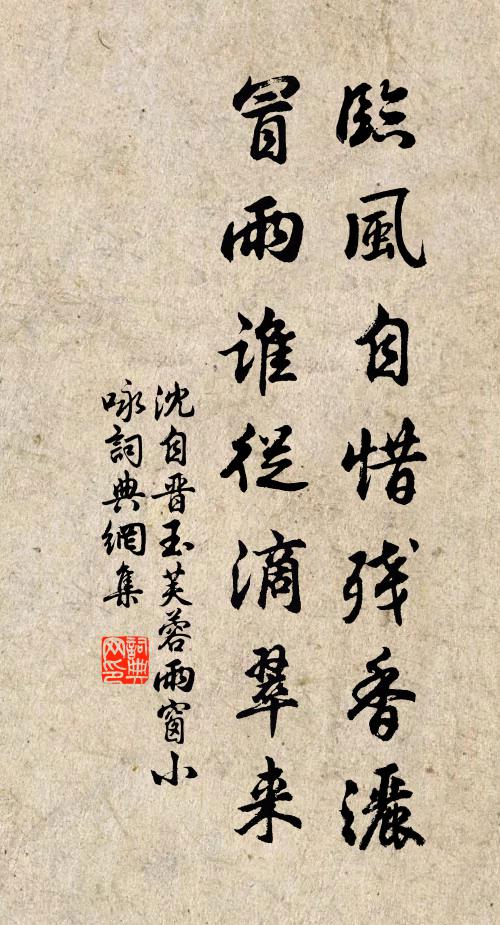 臨風自惜残香灑
冒雨誰從滴翠来
沈自晋玉芙蓉雨窗小
咏詞典網集
詞典网印